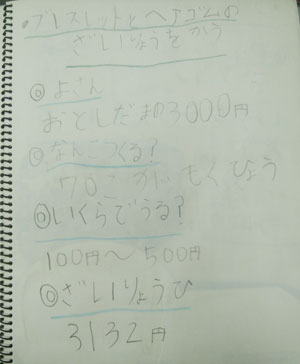 ・ブレスレットとヘアゴムの
ざいりょうをかう
◎よさん
おとしだまの3000円
◎なんこつくる?
70こがもくひょう
◎いくらでうる?
100円〜500円
◎ざいりょうひ
3132円